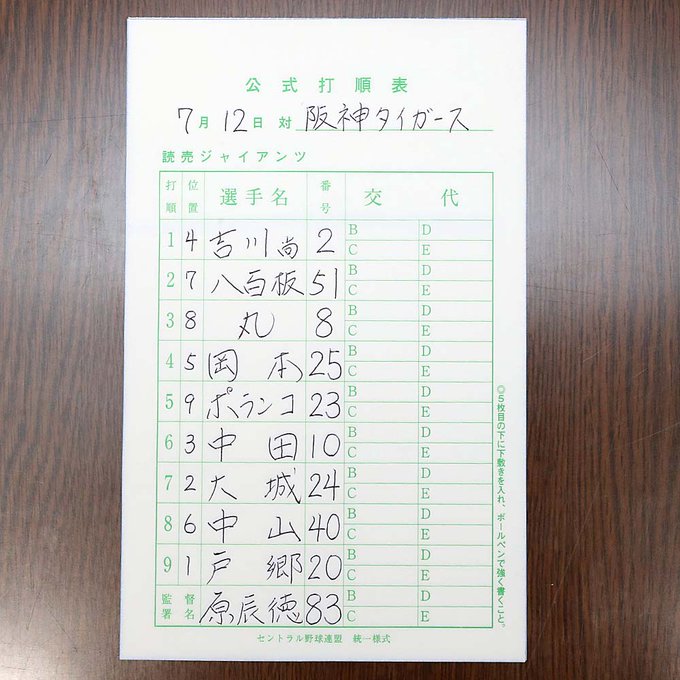 公式打順表
7月12日 対 阪神タイガース
読売ジャイアンツ
打順 位置 選手名 番号 交代
1 4 吉川尚 2 B D C E
2 7 八百板 51 B D C E
3 8 丸 8 B D C E
4 5 岡本 25 B D C E
5 9 ポランコ 23 B D C E
6 3 中田 10 B D C E
7 2 大城 24 B D C E
8 6 中山 40 B D C E
9 1 戸郷 20 B D C E
監督署名 原辰徳 83 B D C E
セントラル野球連盟 統一様式
◎5枚目の下に下敷きを入れ、ボールペンで強く書くこと。